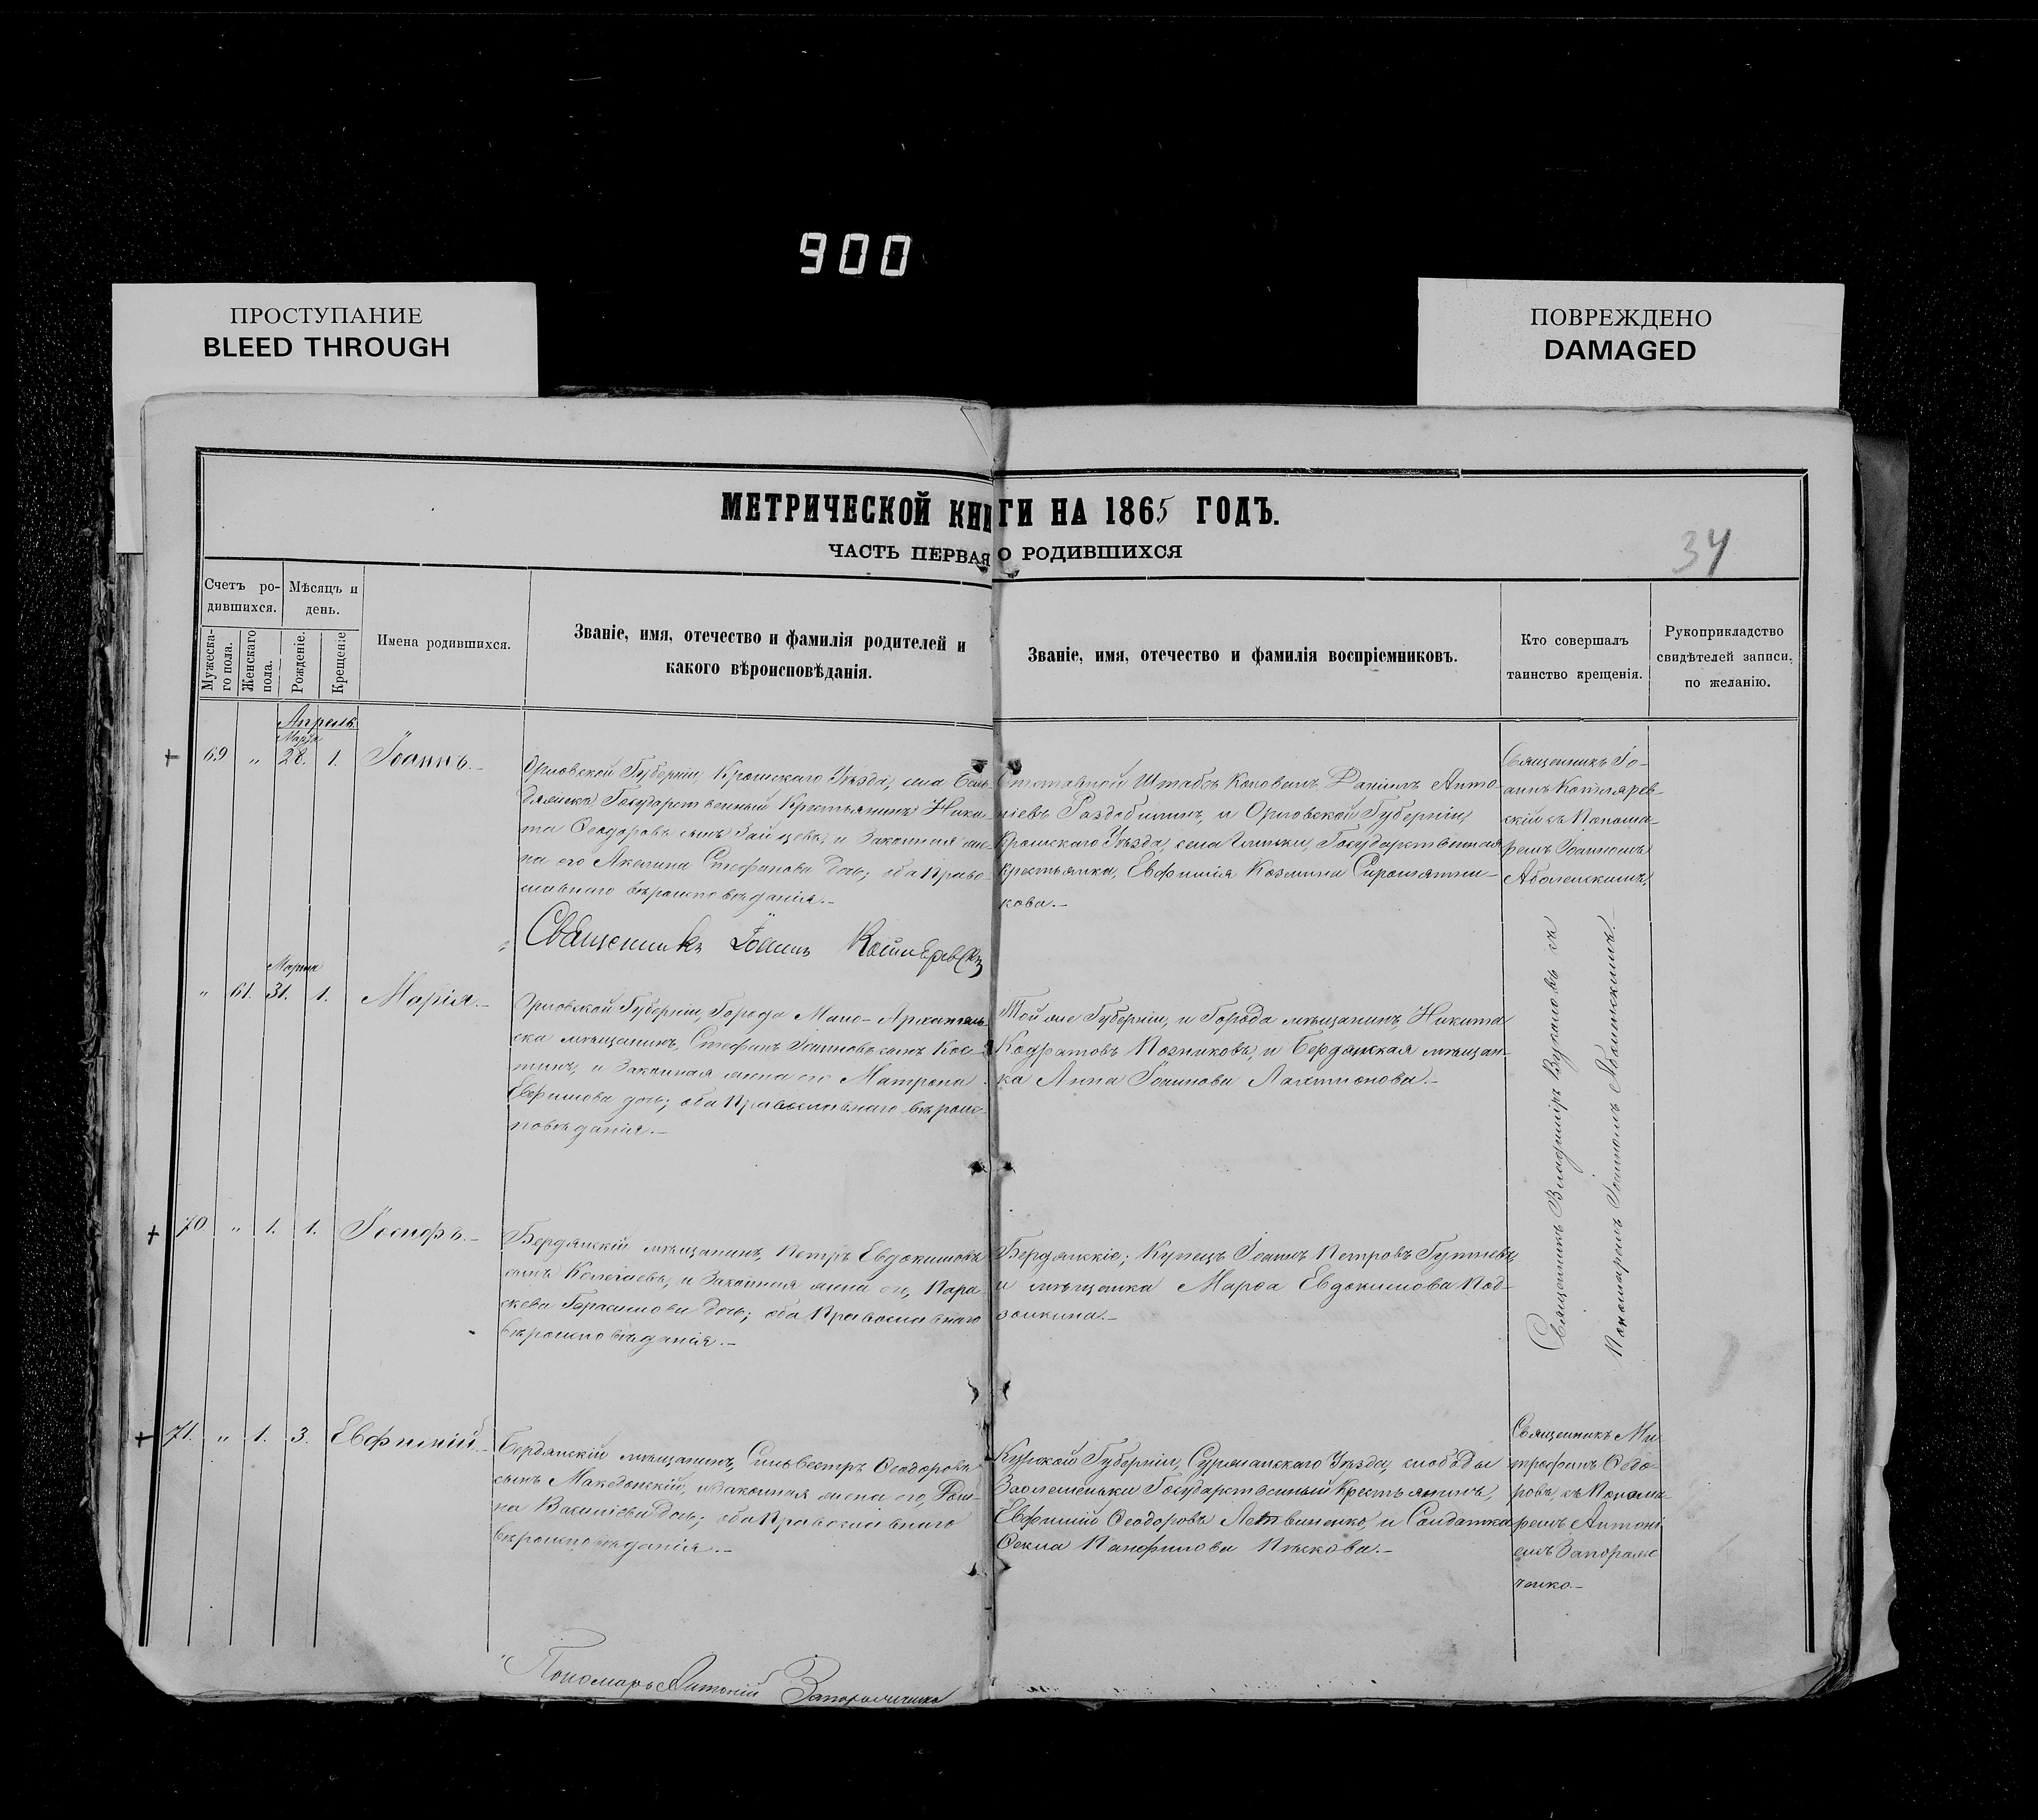 900
ПРОСТУПАНИЕ
BLEED THROUGH
ПОВРЕЖДЕНО
DAMAGED
МЕТРИЧЕСКОЙ КНИГИ НА 1865 ГОДЪ.
ЧАСТЬ ПЕРВАЯ О РОДИВШИХСЯ
34
Счетъ ро-
дившихся.
Мѣсяцъ и
день.
Мужеска-
го пола.
Женскаго
пола.
Рожденіе.
Крещеніе
Имена родившихся.
Званіе, имя, отечество и фамилія родителей и
какого вѣроисповѣданія.
Званіе, имя, отечество и фамилія воспріемниковъ.
Кто совершалъ
таинство крещенія.
Рукоприкладство
свидѣтелей записи,
по желанію.
Апрель.
Марта
69 " 28. 1. Іоаннъ.-
Орловской Губерніи Кромскаго Уѣзда, села
Государственный Крестьянинъ Ники-
та Ѳеодоровъ сынъ Зайцевъ, и Законная же-
на его Акилина Стефанова дочь; оба Право-
славнаго вѣроисповѣданія.-
Штабъ Коновалъ Даніилъ Анто-
ніевъ и Орловской Губерніи,
Кромскаго Уѣзда, села Государственная
крестьянка, Евфимія Козмина Сиротятни-
кова.-
Священникъ Іо-
аннъ Котляров-
скій съ Понома-
ремъ Іоанномъ
Аболенскимъ,
Священникъ Іоаннъ
Марта
" 61. 31. 1. Марія.-
Орловской Губерніи, Города Мало-Архангель-
ска мѣщанинъ, Стефанъ Іоанновъ сынъ Кос-
тинъ, и Законная жена его Матрона
Евфимова дочь; оба Православнаго вѣроис-
повѣданія.-
Той же Губерніи, и Города мѣщанинъ, Никита
Кодратовъ Позниковъ, и Бердянская мѣщан-
ка Анна Іоаннова Лахтіонова.-
Священникъ Владиміръ Вуколовъ съ
Пономаремъ Іоанномъ Аболенскимъ.-
70. " 1. 1. Іосифъ.-
Бердянскій мѣщанинъ, Петръ Евдокимовъ
сынъ и Законная жена его, Пара-
скева Герасимова дочь; оба Православнаго
вѣроисповѣданія.-
Бердянскіе; Купецъ Іоаннъ Петровъ
и мѣщанка Марѳа Евдокимова Под-
золкина.-
71. " 1. 3. Евфимій.-
Бердянскій мѣщанинъ, Сильвестръ Ѳеодоровъ
сынъ Македонскій, и Законная жена его,
Василіева дочь; оба Православнаго
вѣроисповѣданія.-
Курской Губерніи, Суджанскаго Уѣзда, слободы
Заолешеньки Государственный Крестьянинъ,
Евфимій Ѳеодоровъ Летвиненко, и Солдатка
Ѳекла Панфилова Пѣскова.-
Священникъ Ми-
трофанъ Ѳедо-
ровъ, съ Понома-
ремъ Антоні-
емъ Запорож
ченко.-
Пономарь Антоній Запорожченко